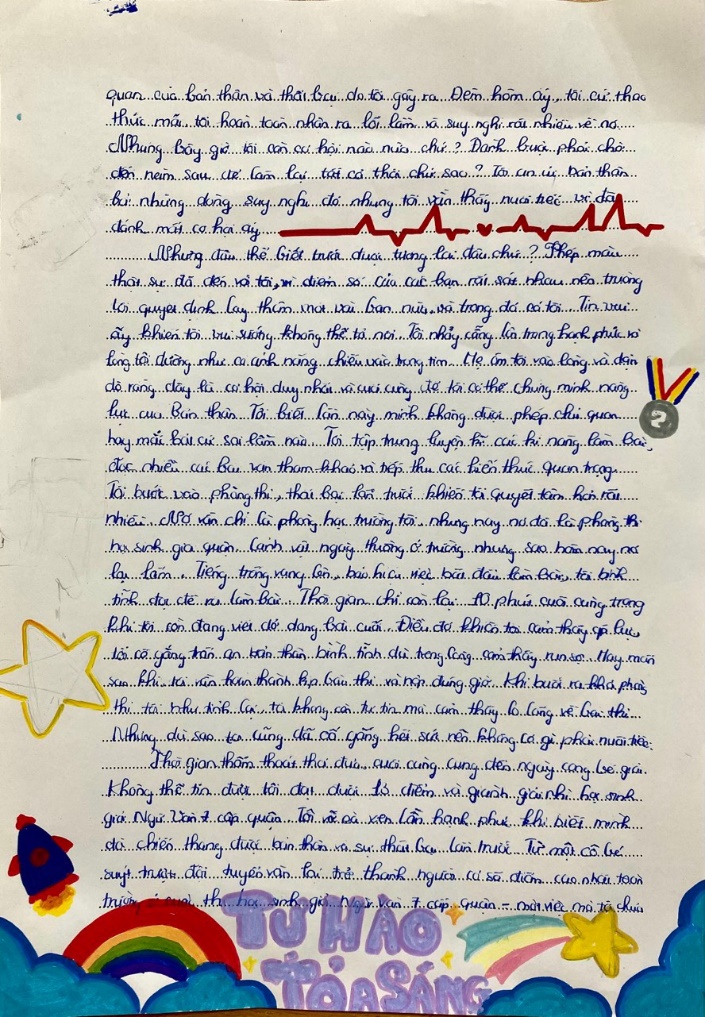 quan của bản thân và thất bại do tôi gây ra. Đêm hôm ấy, tôi cứ thao
thức mãi, tôi hoàn toàn nhận ra lỗi lầm và suy nghĩ rất nhiều về nó.
Nhưng bây giờ tôi còn cơ hội nào nữa chứ? Đành buộc phải chờ
đến năm sau để làm lại tất cả thôi chứ sao? Tôi an ủi bản thân
bởi những dòng suy nghĩ đó nhưng tôi vẫn thấy nuối tiếc vì đã
đánh mất cơ hội ấy.
Nhưng đâu thể biết trước được tương lai đâu chứ? Phép màu
thật sự đã đến với tôi, vì điểm số của các bạn rất sát nhau nên trường
tôi quyết định lấy thêm một vài bạn nữa, và trong đó có tôi. Tin vui
ấy khiến tôi vui sướng không thể tả nổi. Tôi nhảy cẫng lên trong hạnh phúc và
lòng tôi dường như có ánh nắng chiếu vào trong tim. Mẹ ôm tôi vào lòng và dặn
dò rằng đây là cơ hội duy nhất và cuối cùng để tôi có thể chứng minh năng
lực của bản thân. Tôi biết lần này mình không được phép chủ quan
hay mắc bất cứ sai lầm nào. Tôi tập trung luyện kĩ các kĩ năng làm bài,
đọc nhiều các bài văn tham khảo và tiếp thu các kiến thức quan trọng.
Tôi bước vào phòng thi, thất bại lần trước khiến tôi quyết tâm hơn rất
nhiều. Nó vẫn chỉ là phòng học trường tôi nhưng nay nó đã là phòng thi
học sinh giỏi quận. Cảnh vật ngày thường ở trường nhưng sao hôm nay nó
lạ lắm. Tiếng trống vang lên, báo hiệu việc bắt đầu làm bài, tôi bình
tĩnh đọc đề rồi làm bài. Thời gian chỉ còn lại 10 phút cuối cùng trong
khi tôi còn đang viết dở dang bài cuối. Điều đó khiến tôi cảm thấy áp lực
tôi cố gắng trấn an bản thân bình tĩnh dù trong lòng cảm thấy run sợ. May mắn
sao khi tôi vẫn hoàn thành kịp bài thi và nộp đúng giờ. Khi bước ra khỏi phòng
thi tôi như tỉnh lại, tôi không còn tự tin mà cảm thấy lo lắng về bài thi.
Nhưng dù sao tôi cũng đã cố gắng hết sức nên không có gì phải nuối tiếc.
Thời gian thấm thoắt thoi đưa, cuối cùng cũng đến ngày công bố giải.
Không thể tin được tôi đạt được 15 điểm và giành giải nhì học sinh
giỏi Ngữ Văn 7 cấp quận. Tôi vỡ oà xen lẫn hạnh phúc khi biết mình
đã chiến thắng được bản thân và sự thất bại lần trước. Từ một cô bé
suýt trượt đội tuyển văn lại trở thành người có số điểm cao nhất toàn
trường ở cuộc thi học sinh giỏi Ngữ văn 7 cấp quận - một việc mà tôi chưa
2
TỰ HÀO
TỎA SÁNG